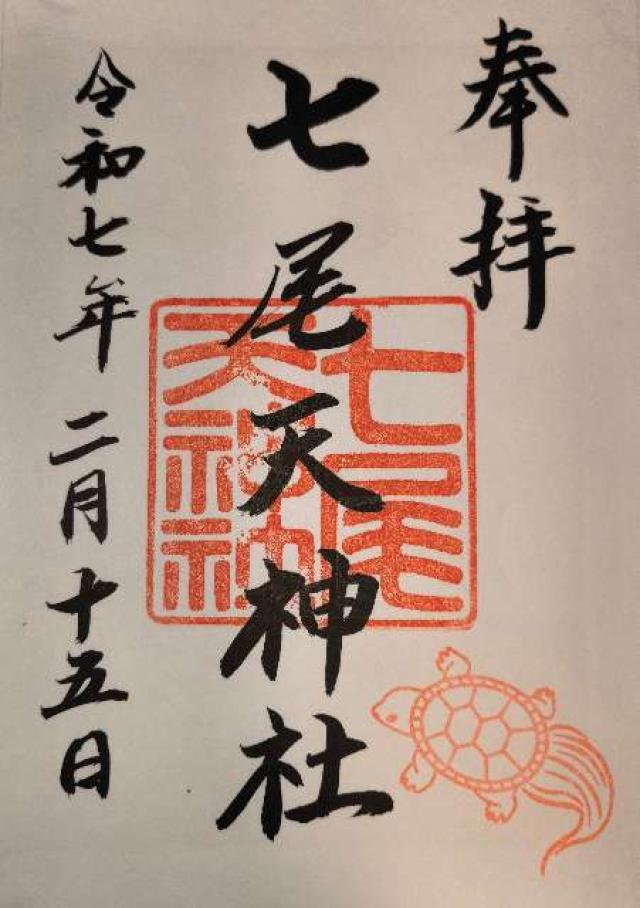 奉拝
七尾天神社
七尾
天神社
令和七年二月十五日